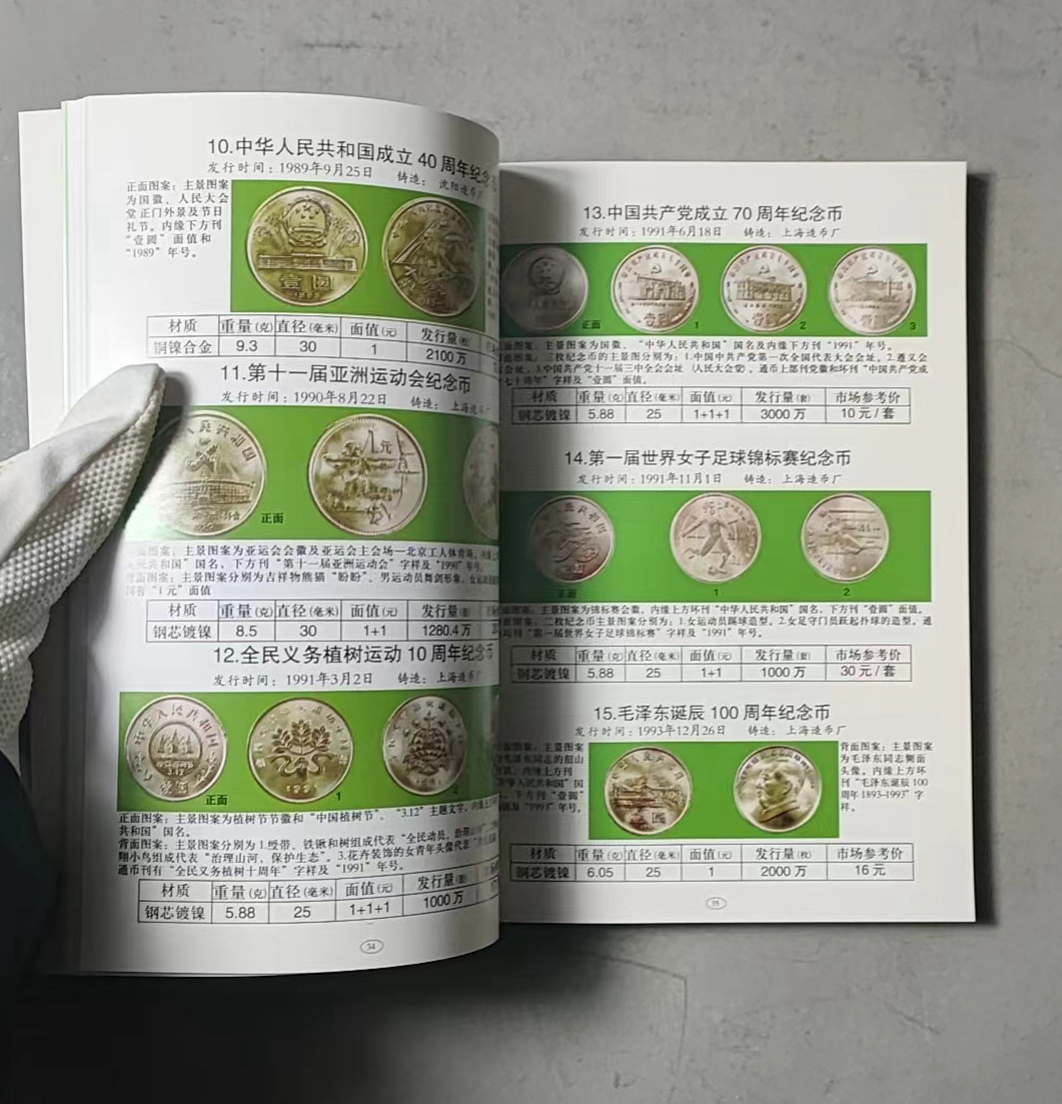 10.中华人民共和国成立 40 周年纪念
发行时间：1989年9月25日 铸造： 沈阳造币厂
正面图案：主景图案
为国徽、人民大会
堂正门外景及节日
礼节。内缘下方刊
“壹圆” 面值和
“1989” 年号。
材质 重量(克) 直径(毫米) 面值(元) 发行量(枚)
铜镍合金 9.3 30 1 2100 万
11.第十一届亚洲运动会纪念币
发行时间：1990年8月22日 铸造： 上海造币厂
正面
图案：主景图案为亚运会会徽及亚运会主会场—北京工人体育场，内缘
民共和国” 国名，下方刊 “第十一届亚洲运动会” 字样及 “1990” 年号。
背面图案：主景图案分别为吉祥物熊猫 “盼盼”、男运动员舞剑形象、女运动
刊有 “1 元” 面值
材质 重量(克) 直径(毫米) 面值(元) 发行量(套)
钢芯镀镍 8.5 30 1+1 1280.4 万
12.全民义务植树运动 10 周年纪念币
发行时间：1991年3月2日 铸造： 上海造币厂
正面 1 2
正面图案：主景图案为植树节节徽和 “中国植树节”、“3.12” 主题文字，内缘上
共和国” 国名。
背面图案：主景图案分别为 1.绶带、铁锹和树组成代表 “全民动员，
翔小鸟组成代表 “治理山河，保护生态”。3.花卉装饰的女青年头像代表
通币刊有 “全民义务植树十周年” 字样及 “1991” 年号。
材质 重量(克) 直径(毫米) 面值(元) 发行量(套)
钢芯镀镍 5.88 25 1+1+1 1000 万
34
13.中国共产党成立 70 周年纪念币
发行时间：1991年6月18日 铸造： 上海造币厂
正面 1 2 3
面图案：主景图案为国徽、“中华人民共和国” 国名及内缘下方刊 “1991” 年号。
面图案：三枚纪念币的主景图分别为：1.中国中共产党第一次全国代表大会会址，2.遵义会
会址，3.中国共产党十一届三中全会会址 （人民大会堂）。通币上部刊党徽和环刊 “中国共产党成
七十周年” 字样及 “壹圆” 面值。
材质 重量(克) 直径(毫米) 面值(元) 发行量(套) 市场参考价
钢芯镀镍 5.88 25 1+1+1 3000 万 10 元/套
14.第一届世界女子足球锦标赛纪念币
发行时间：1991年11月1日 铸造： 上海造币厂
正面 1 2
面图案：主景图案为锦标赛会徽，内缘上方环刊 “中华人民共和国” 国名，下方刊 “壹圆” 面值。
面图案：二枚纪念币主景图案分别为：1.女运动员踢球造型。2.女足守门员跃起扑球的造型。通
均刊 “第一届世界女子足球锦标赛” 字样及 “1991” 年号。
材质 重量(克) 直径(毫米) 面值(元) 发行量(套) 市场参考价
钢芯镀镍 5.88 25 1+1 1000 万 30 元/套
15.毛泽东诞辰 100 周年纪念币
发行时间：1993年12月26日 铸造： 上海造币厂
面图案：主景图案
毛泽东同志的韶山
居，内缘上方刊
中华人民共和国” 国
，下方刊 “壹圆”
值及 “1993” 年号。
背面图案：主景图案
为毛泽东同志侧面
头像。内缘上方环
刊 “毛泽东诞辰 100
周年 1893-1993” 字
样。
材质 重量(克) 直径(毫米) 面值(元) 发行量(枚) 市场参考价
钢芯镀镍 6.05 25 1 2000 万 16 元
35